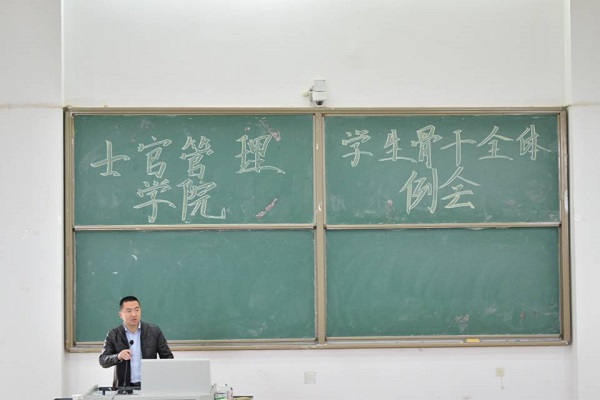 士官管理
学院
学生骨干全体
例会